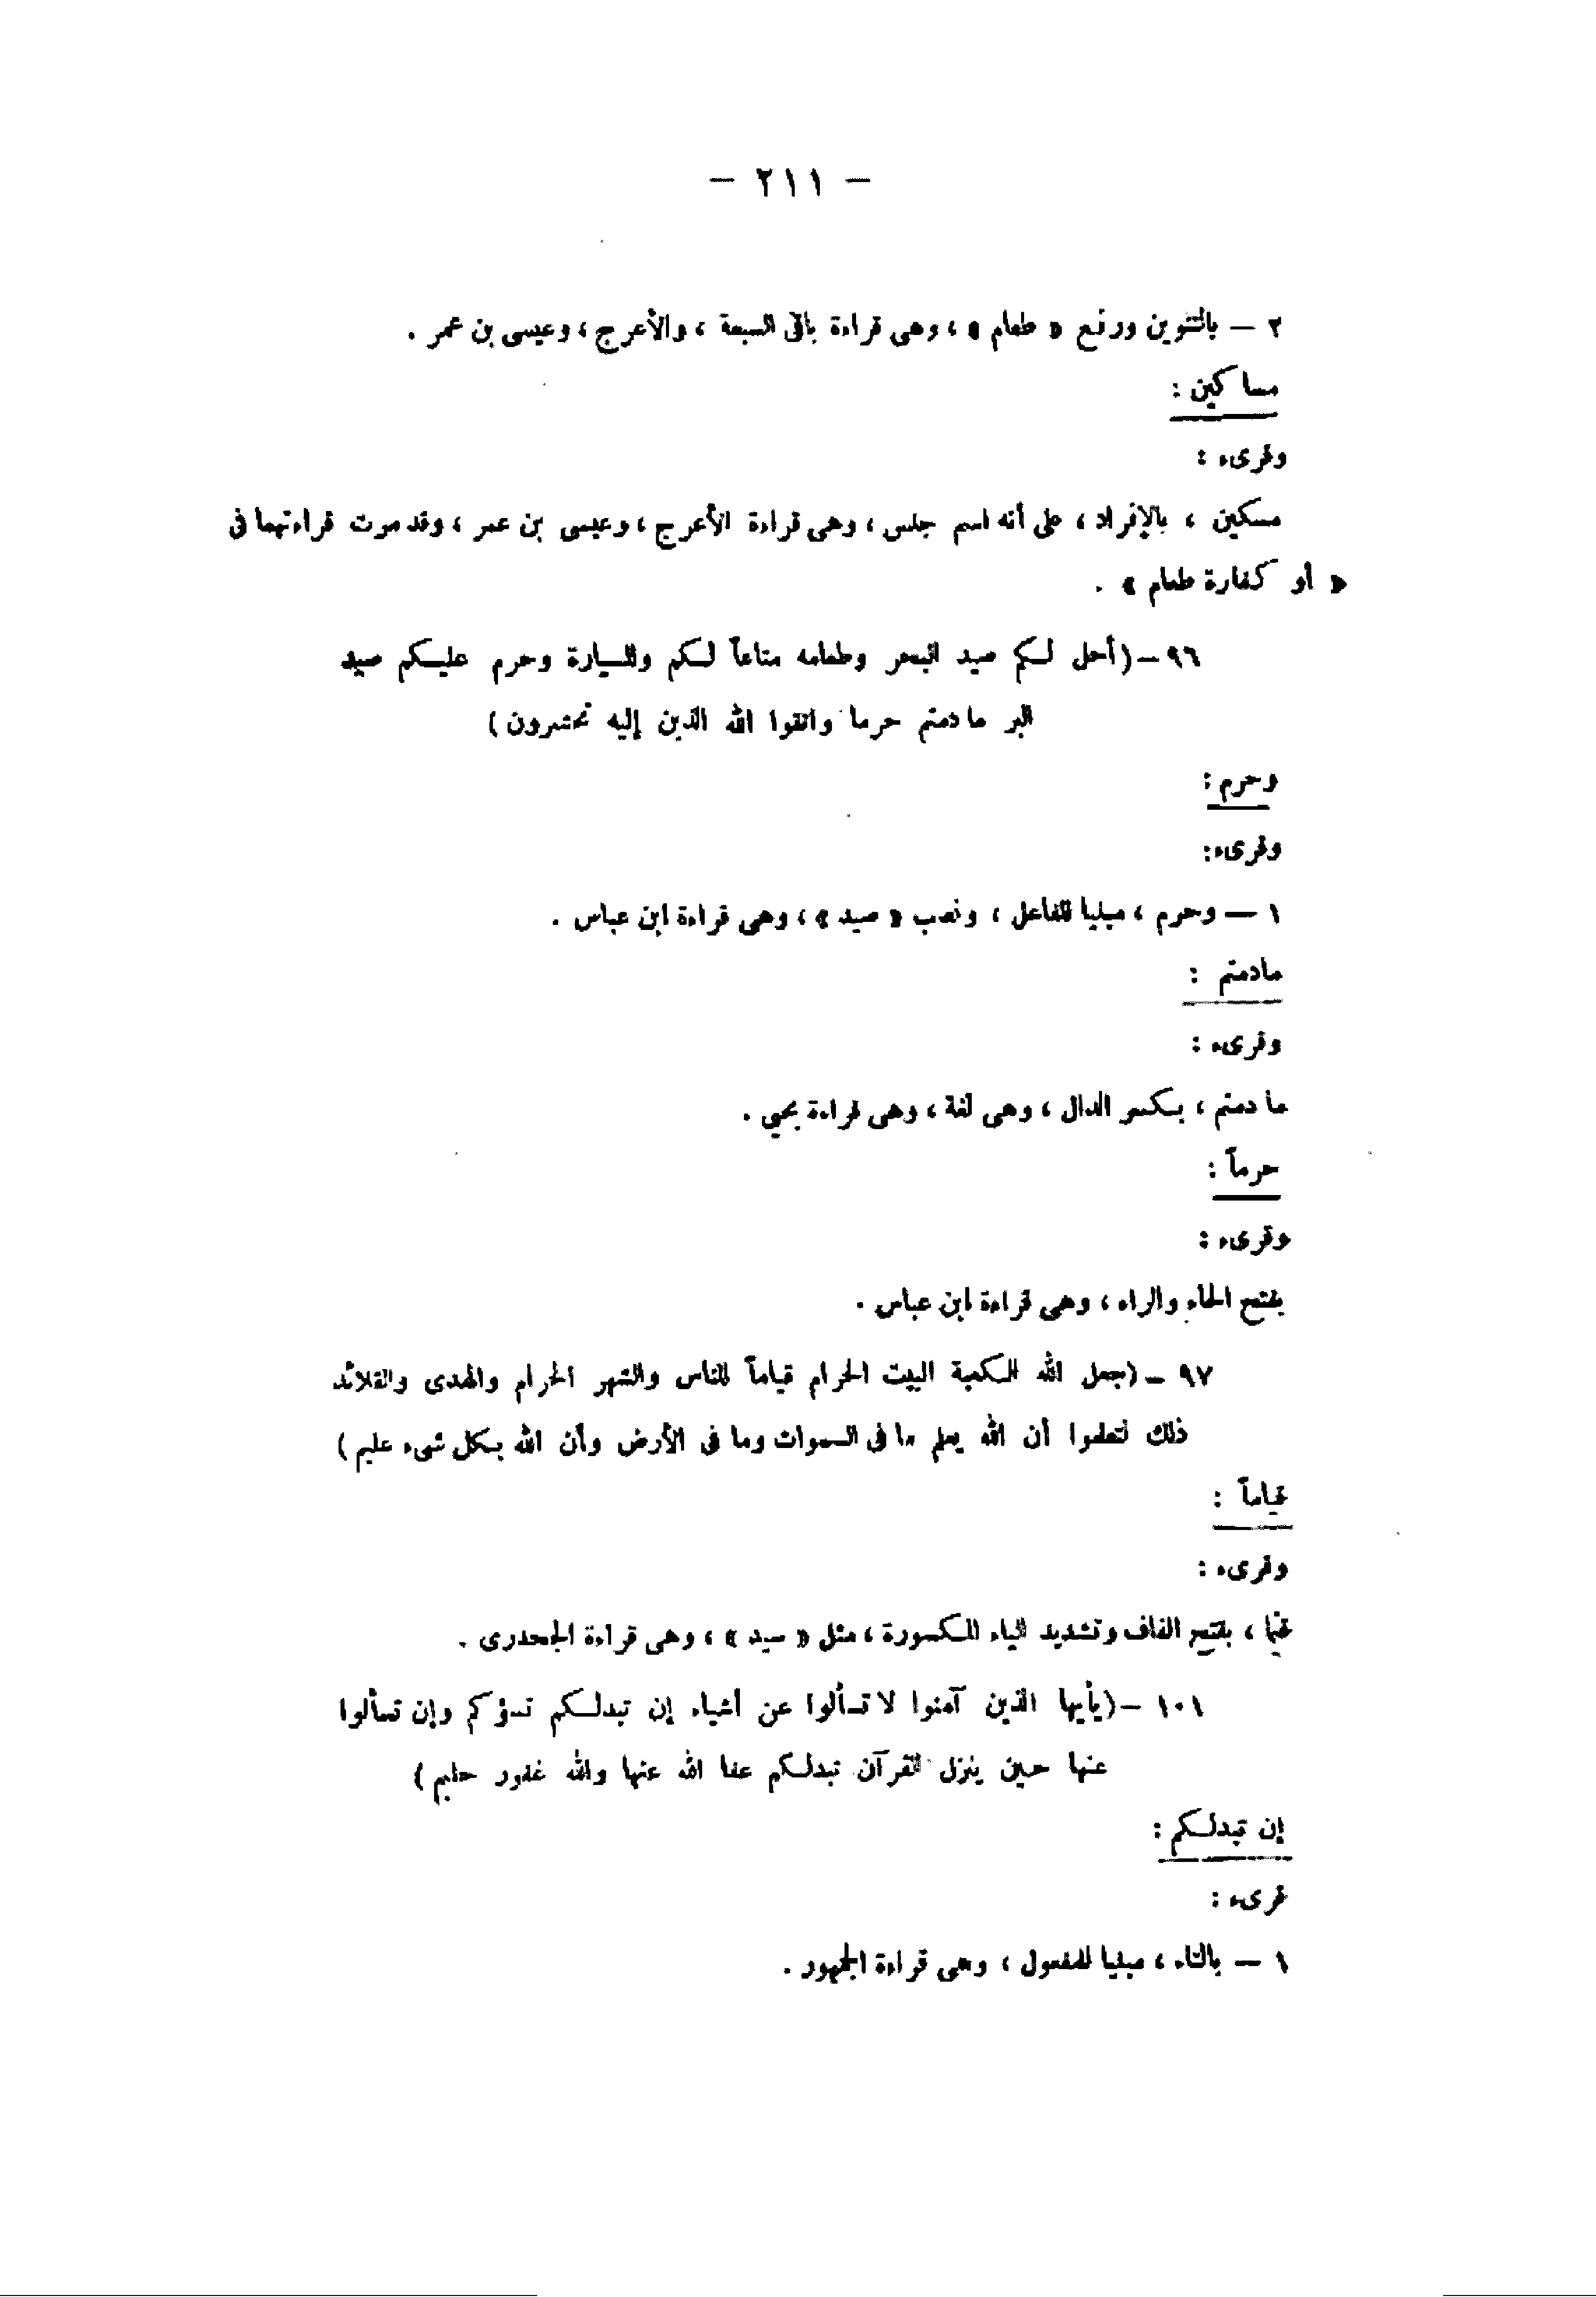 — ٢١١ —
٢ — بالتنوين ورفع « طعام » ، وهى قراءة باقى السبعة ، والأعرج ، وعيسى بن عمر .
مساكين :
وقرىء :
مسكين ، بالإفراد ، على أنه اسم جنس ، وهى قراءة الأعرج ، وعيسى بن عمر ، وقد مرت قراءتهما فى
« أو كفارة طعام » .
٩٦ — (أحل لكم صيد البحر وطعامه متاعاً لكم وللسيارة وحرم عليكم صيد
البر مادمتم حرما واتقوا الله الذين إليه تحشرون)
وحرم :
وقرىء:
١ — وحرم ، مبنيا للفاعل ، ونصب « صيد » ، وهى قراءة ابن عباس .
مادمتم :
وقرىء :
مادمتم ، بكسر الدال ، وهى لغة ، وهى قراءة يحيي .
حرماً :
وقرىء :
بفتح الحاء والراء ، وهى قراءة ابن عباس .
٩٧ — (جعل الله الكعبة البيت الحرام قياماً للناس والشهر الحرام والهدى والقلائد
ذلك لتعلموا أن الله يعلم ما فى السموات وما فى الأرض وأن الله بكل شىء عليم)
قياماً :
وقرىء :
قيما ، بفتح القاف وتشديد الياء المكسورة ، مثل « سيد » ، وهى قراءة الجحدرى .
١٠١ — (يأيها الذين آمنوا لا تسألوا عن أشياء إن تبدلكم تسؤكم وإن تسألوا
عنها حين ينزل القرآن تبدلكم عفا الله عنها والله غفور حليم)
إن تبدلكم :
قرىء :
١ — بالتاء ، مبنيا للمفعول ، وهى قراءة الجمهور .